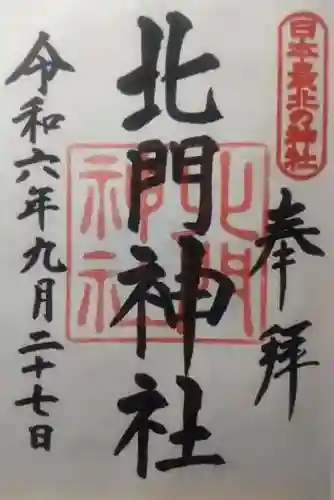 日本最北の神社
奉拝
北門神社
北門
神社
令和六年九月二十七日